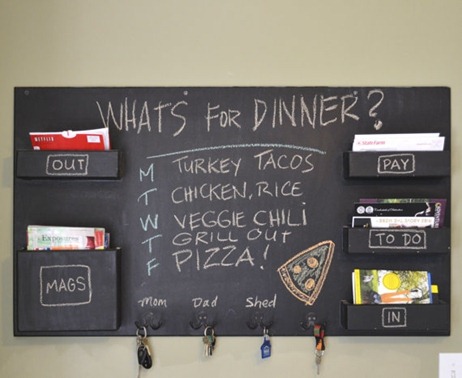 WHAT'S FOR DINNER?
NETFLIX
OUT
PAY
M TURKEY TACOS
T CHICKEN, RICE
W VEGGIE CHILI
T GRILL OUT
F PIZZA!
TO DO
MAGS
IN
Mom Dad Shed